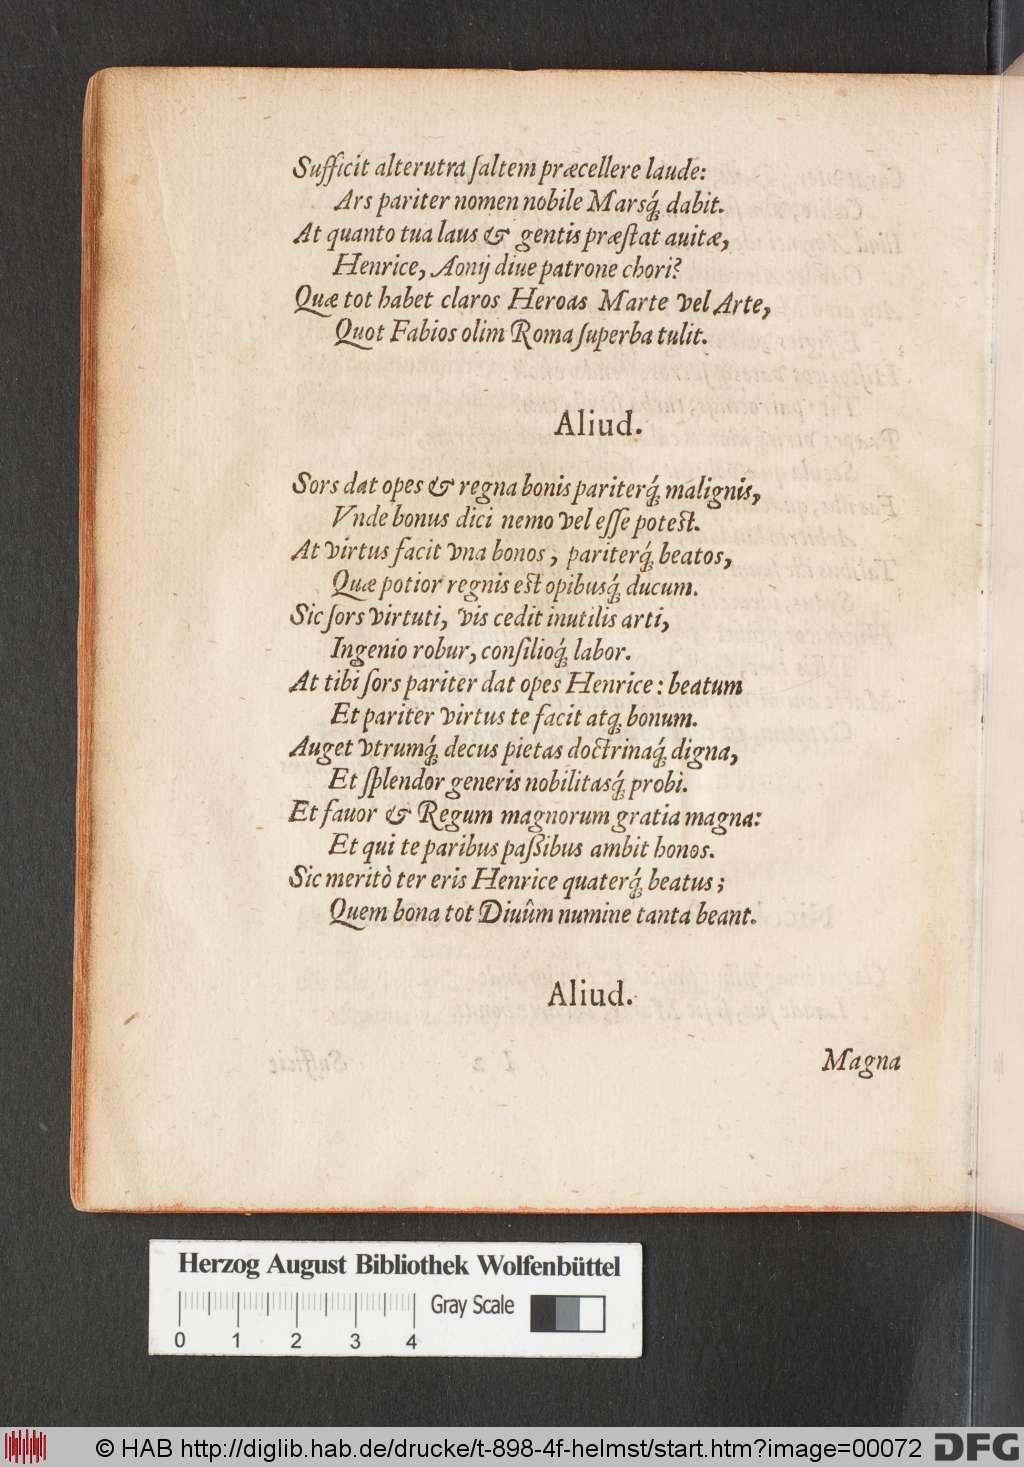 Sufficit alterutra ſaltem præcellere laude:
Ars pariter nomen nobile Marsq́; dabit.
At quanto tua laus & gentis præſtat auitæ,
Henrice, Aonij diue patrone chori?
Quæ tot habet claros Heroas Marte vel Arte,
Quot Fabios olim Roma ſuperba tulit.
Aliud.
Sors dat opes & regna bonis pariterq́; malignis,
Vnde bonus dici nemo vel eſſe poteſt.
At virtus facit vna bonos, pariterq́; beatos,
Quæ potior regnis eſt opibusq́; ducum.
Sic ſors virtuti, vis cedit inutilis arti,
Ingenio robur, conſilioq́; labor.
At tibi ſors pariter dat opes Henrice: beatum
Et pariter virtus te facit atq; bonum.
Auget vtrumq́; decus pietas doctrinaq́; digna,
Et ſplendor generis nobilitasq́; probi.
Et fauor & Regum magnorum gratia magna:
Et qui te paribus paßibus ambit honos.
Sic meritò ter eris Henrice quaterq́; beatus;
Quem bona tot Diuûm numine tanta beant.
Aliud.
Magna
Herzog August Bibliothek Wolfenbüttel
Gray Scale
0 1 2 3 4
© HAB http://diglib.hab.de/drucke/t-898-4f-helmst/start.htm?image=00072
DFG